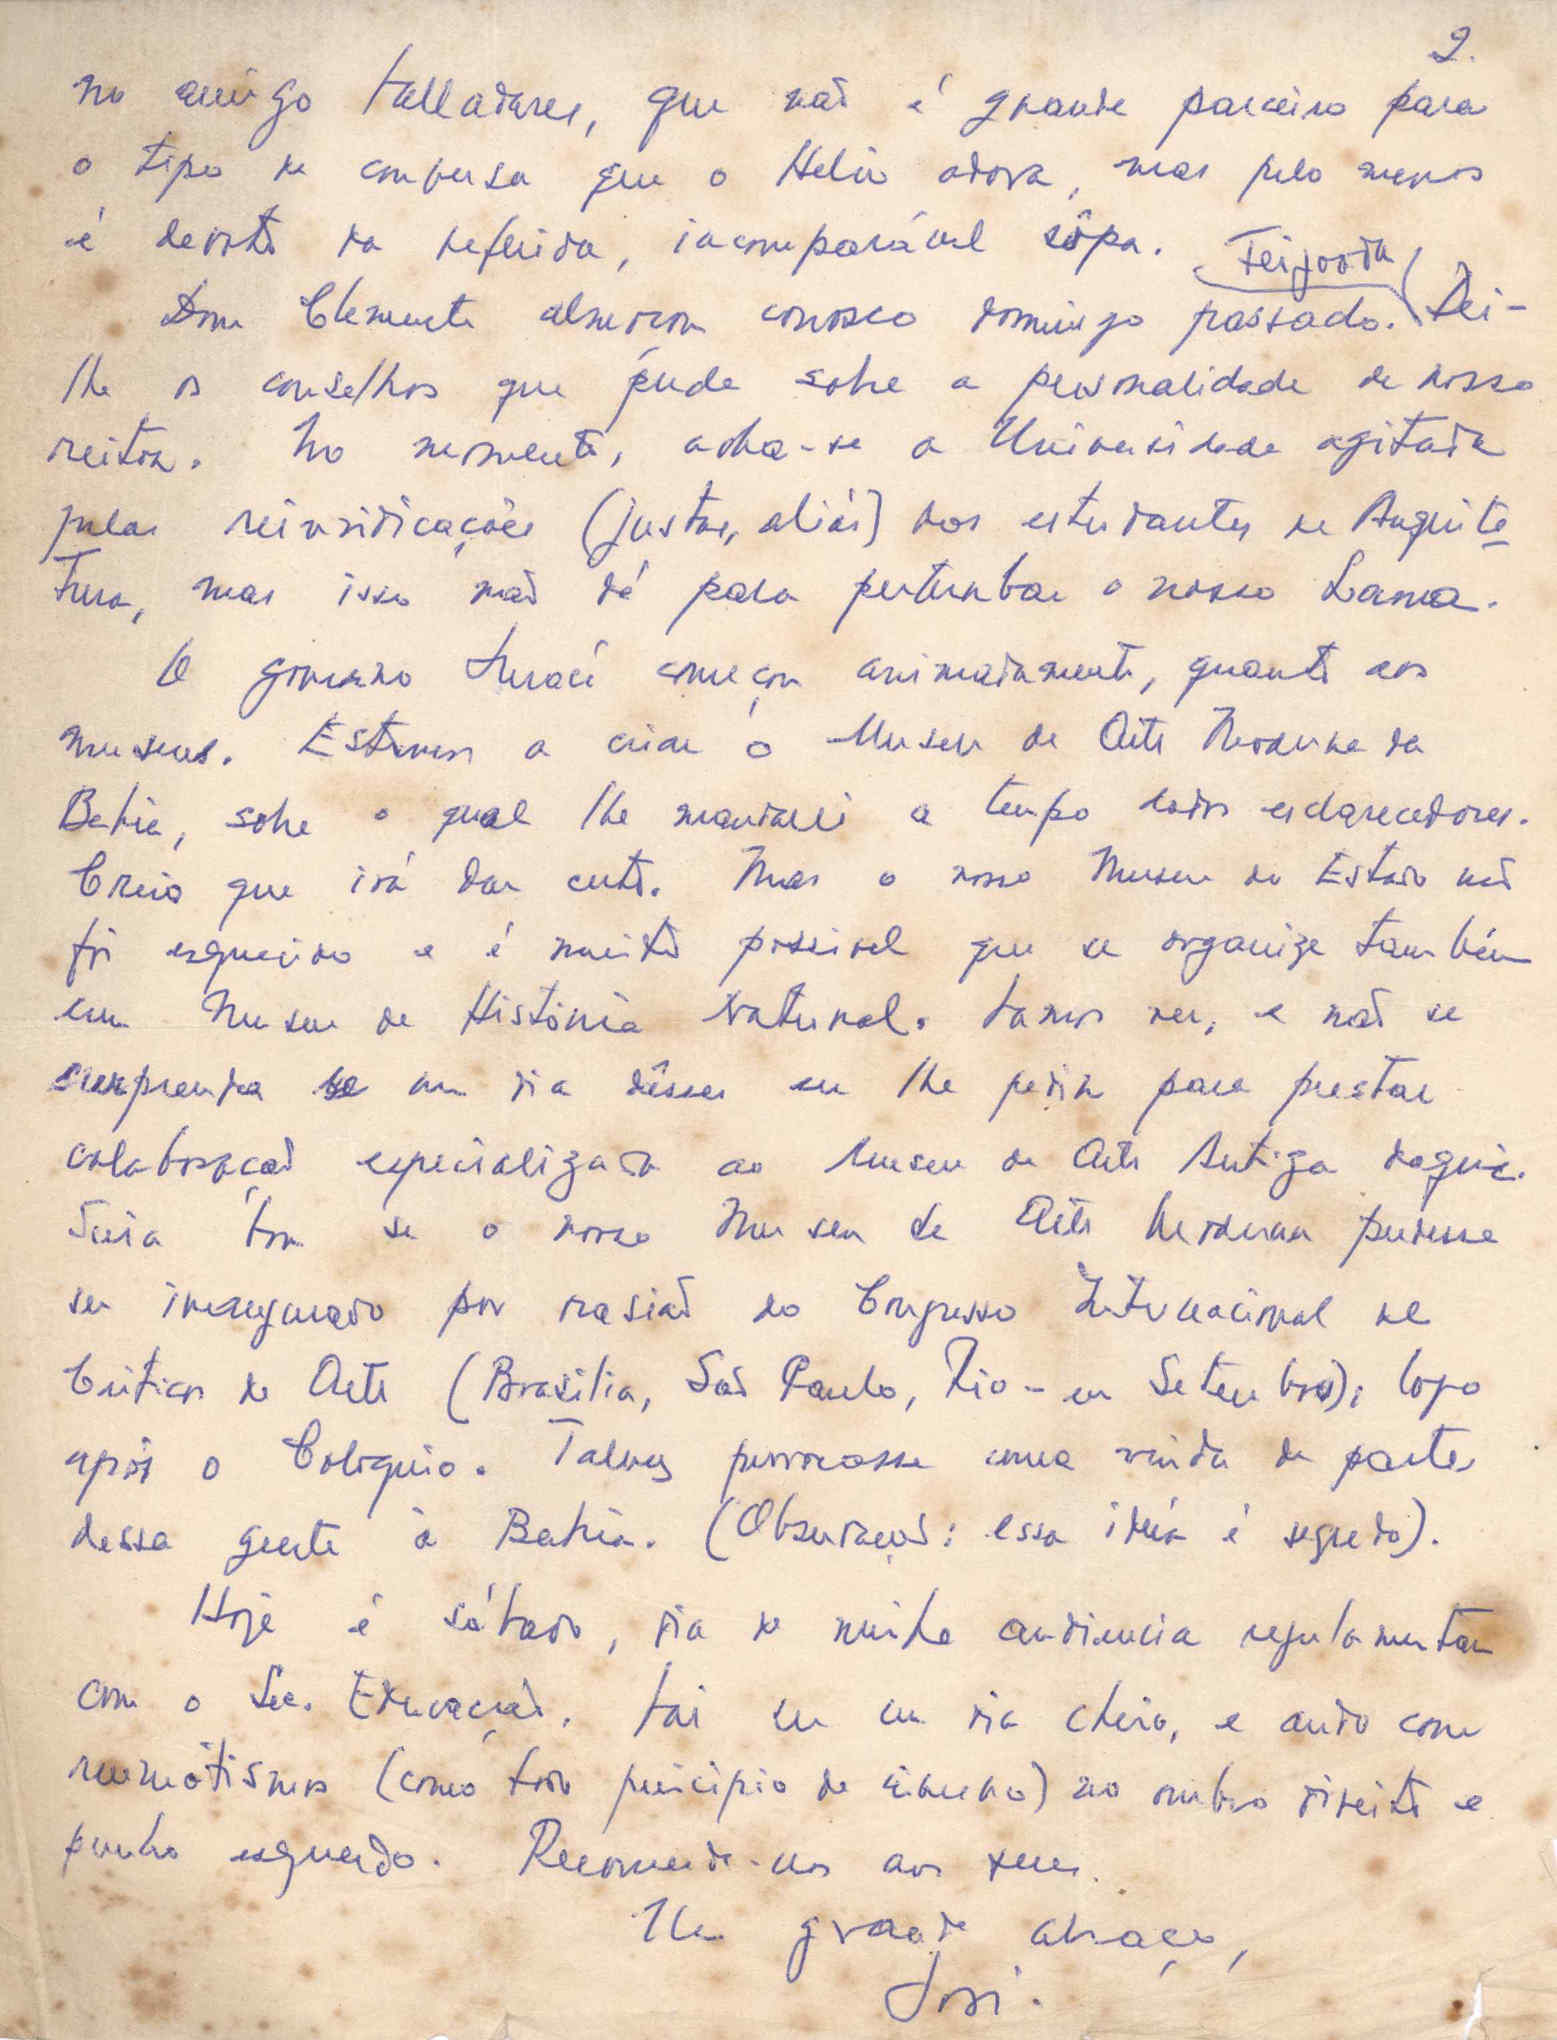 2.
no amigo Valladares, que não é grande parceiro para
o tipo de conversa que o Helio adora, mas pelo menos
é devoto da referida, incomparável sôpa.
Feijoada
Dom Clemente almoçou conosco domingo passado. Dei-
lhe os conselhos que pude sobre a personalidade de nosso
reitor. No momento, acha-se a Universidade agitada
pelas reivindicações (justas, aliás) dos estudantes de Arquite-
tura, mas isso não dá para perturbar o nosso Lama.
O governo Juraci começou animadamente, quanto aos
museus. Estamos a criar o Museu de Arte Moderna da
Bahia, sobre o qual lhe mandarei a tempo dados esclarecedores.
Creio que irá dar certo. Mas o nosso Museu do Estado não
foi esquecido e é muito possivel que se organize também
um Museu de História Natural. Vamos ver, e não se
surpreenda se um dia dêsses eu lhe pedir para prestar
colaboração especializada ao Museu de Arte Antiga daqui.
Seria bom se o nosso Museu de Arte Moderna pudesse
ser inaugurado por ocasião do Congresso Internacional de
Criticos de Arte (Brasilia, São Paulo, Rio - em Setembro), logo
após o Coloquio. Talvez provocasse uma vinda de partes
dessa gente à Bahia. (Observação: essa idéia é segredo).
Hoje é sábado, dia de minha audiencia regulamentar
com o Sec. Educação. Vai ser um dia cheio, e ando com
reumatismo (como todo principio de inverno) no ombro direito e
punho esquerdo. Recomende-nos aos seus.
Um grande abraço,
José.